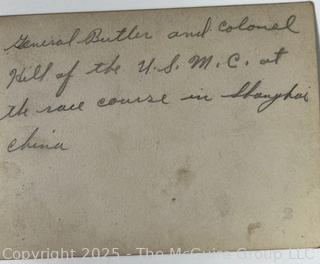 General Butler and Colonel
Hill of the U.S.M.C. at
the race course in Shanghai
China
Copyright 2025 - The McGuire Group, LLC